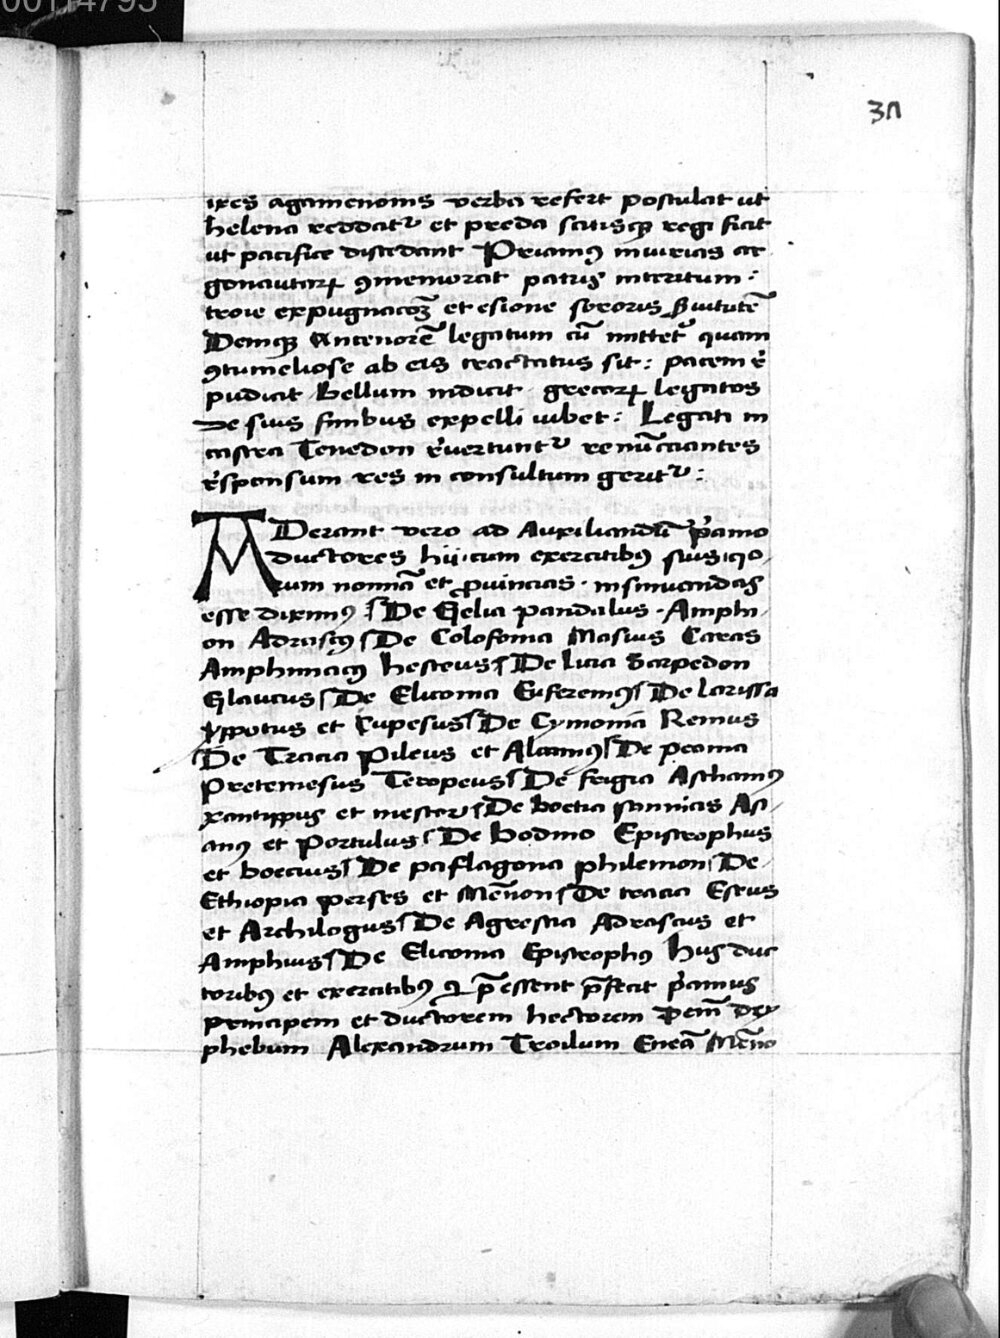 00114795
30
ixes agamenonis verba refert postulat ut
helena reddatᵘ et preda satisqꝫ regi fiat
ut pacifice discedant Priamꝯ iniurias ar
gonautarꝝ ꝯmemorat patris interitum :
troie expugnacōꝫ et esione sororis ẜuitutē
Deniqꝫ Antenorē legatum cū mittetᵘ quam
ꝯtumeliose ab eis tractatus sit : pacem re
pudicit Bellum indicit grecorꝝ legatos
De suis finibus expelli iubet : Legati in
castra Tenedon rͤuertuntᵘ renūciantes
rͤsponsum res in consultum geritᵘ :
ADerant vero ad Auxiliandū pͥamo
ductores hii cum exercitibꝯ suis quo
rum nomīa et ꝓuincias insinuandas
esse diximꝯ De Gelia pandalus Amphi
on Adrastꝯ De Colofonia Masius Caras
Amphimacꝯ hesteus De Licia Sarpedon
Glaucus De Eliconia Euferemꝯ De Larissa
ypotus et Cupesus De Cymonia Remus
De Tracia Pileus et Alcamꝯ De peonia
Pretemesus Teropeus De frigia Aschamꝯ
xantippus et mestor De boetia sannias Asi
anꝯ et Portulus De bodmo Epistrophus
et boecius De paflagona philemon De
Ethiopia perses et Mēnon De tracia Eseus
et Archilogus De Agrestia Adrastus et
Amphius De Eliconia Epistrophꝯ Hus duc
toribꝯ et exercitibꝯ q p̄essent p̄fecit pͥamus
principem et ductorem hectorem Dein̄ dey
phebum Alexandrum Troilum Eneā Mēno